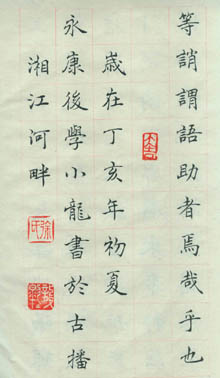 等誚謂語助者焉哉乎也
歲在丁亥年初夏
永康後學小龍書於古播
湘江河畔
徐氏